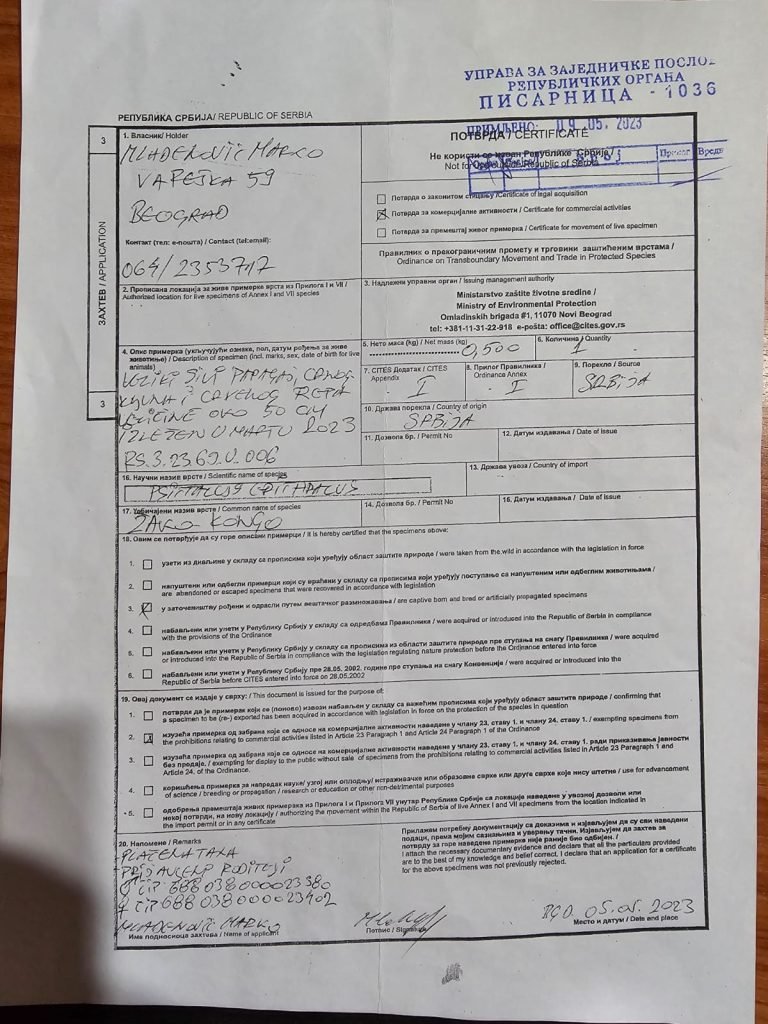 УПРАВА ЗА ЗАЈЕДНИЧКЕ ПОСЛО
РЕПУБЛИЧКИХ ОРГАНА
ПИСАРНИЦА - 1036
ПРИМЉЕНО: 09.05.2023
РЕПУБЛИКА СРБИЈА/ REPUBLIC OF SERBIA
3
ЗАХТЕВ / APPLICATION
3
1. Власник/ Holder
MLADENOVIĆ MARKO
VAREŠKA 59
BEOGRAD
Контакт (тел: е-пошта) / Contact (tel:email):
064/2353717
ПОТВРДА / CERTIFICATE
Не користи се ван Републике Србије /
Not for use outside Republic of Serbia
Потврда о законитом стицању /Certificate of legal acquisition
Потврда за комерцијалне активности / Certificate for commercial activities
Потврда за премештај живог примерка / Certificate for movement of live specimen
Правилник о прекограничном промету и трговини заштићеним врстама /
Ordinance on Transboundary Movement and Trade in Protected Species
2. Прописана локација за живе примерке врста из Прилога I и VII /
Authorized location for live species of Annex I and VII species
3. Надлежни управни орган / Issuing management authority
Ministarstvo zaštite životne sredine /
Ministry of Environmental Protection
Omladinskih brigada #1, 11070 Novi Beograd
tel: +381-11-31-22-918 e-pošta: office@cites.gov.rs
4. Опис примерка (укључујући ознаке, пол, датум рођења за живе
животиње) / Description of specimen (incl. marks, sex, date of birth for live
animals)
VELIKI SIVI PAPAGAJ, CRNOG
KLJUNA I CRVENOG REPA
VELIČINE OKO 50 CM
IZLEŽEN U MARTU 2023
RS.3.23.69.V.006
5. Нето маса (кг) / Net mass (kg)
0,500
6. Количина / Quantity
1
7. CITES Додатак / CITES
Appendix
I
8. Прилог Правилника /
Ordinance Annex
I
9. Порекло / Source
SRBIJA
10. Држава порекла / Country of origin
SRBIJA
11. Дозвола бр. / Permit No
12. Датум издавања / Date of issue
13. Држава увоза / Country of import
14. Дозвола бр. / Permit No
15. Датум издавања / Date of issue
16. Научни назив врсте / Scientific name of species
17. Уобичајени назив врсте / Common name of species
ŽAKO KONGO
18. Овим се потврђује да су горе описани примерци / It is hereby certified that the specimens above:
1. узети из дивљине у складу са прописима који уређују област заштите природе / were taken from the wild in accordance with the legislation in force
2. напуштени или одбегли примерци који су враћени у складу са прописима који уређују поступање са напуштеним или одбеглим животињама /
are abandoned or escaped specimens that were recovered in accordance with legislation
3. у заточеништву рођени и одрасли путем вештачког размножавања / are captive born and bred or artificially propagated specimens
4. набављени или унети у Републику Србију у складу са одредбама Правилника / were acquired or introduced into the Republic of Serbia in compliance
with the provisions of the Ordinance
5. набављени или унети у Републику Србију у складу са прописима из области заштите природе пре ступања на снагу Правилника / were acquired
or introduced into the Republic of Serbia in compliance with the legislation regulating nature protection before the Ordinance entered into force
6. набављени или унети у Републику Србију пре 28.05. 2002. године пре ступања на снагу Конвенције / were acquired or introduced into the
Republic of Serbia before CITES entered into force on 28.05.2002
19. Овај документ се издаје у сврху: / This document is issued for the purpose of:
1. потврда да је примерак који се (поново) извози набављен у складу са важећим прописима који уређују област заштите природе / confirming that
a specimen to be (re-) exported has been acquired in accordance with legislation in force on the protection of the species in question
2. изузећа примерка од забрана које се односе на комерцијалне активности наведене у члану 23. став 1. и члану 24. ставу 1. / exempting specimens from
the prohibitions relating to commercial activities listed in Article 23 Paragraph 1 and Article 24 Paragraph 1 of the Ordinance
3. изузећа примерка од забрана које се односе на комерцијалне активности наведене у члану 23. ставу 1. и члану 24. ставу 1. ради приказивања јавности
без продаје, / exempting for display to the public without sale of specimens from the prohibitions relating to commercial activities listed in Article 23 Paragraph 1 and
Article 24. of the Ordinance.
4. коришћења примерка за напредак науке/ узгој или оплодњу/ истраживачке или образовне сврхе или друге сврхе које нису штетне / use for advancement
of science / breeding or propagation / research or education or other non-detrimental purposes
5. одобрења премештаја живих примерака из Прилога I и Прилога VII унутар Републике Србије са локације наведене у увозној дозволи или
некој потврди, на нову локацију / authorizing the movement within the Republic of Serbia of live Annex I and VII specimens from the location indicated in
the import permit or in any certificate
20. Напомене / Remarks
PLAĆENA TAXA
PRIJAVLJENI RODITELJI
♂ ČIP 688038000023380
♀ ČIP 688038000023402
MLADENOVIĆ MARKO
Име подносиоца захтева / Name of applicant
Прилажем потребну документацију са доказима и изјављујем да су сви наведени
подаци, према мојим сазнањима и уверењу тачни. Изјављујем да захтев за
потврду за горе наведене примерке није раније био одбијен. /
I attach the necessary documentary evidence and declare that all the particulars provided
are to the best of my knowledge and belief correct. I declare that an application for a certificate
for the above specimens was not previously rejected.
Потпис / Signature
BGD. 05.05.2023
Место и датум / Date and place